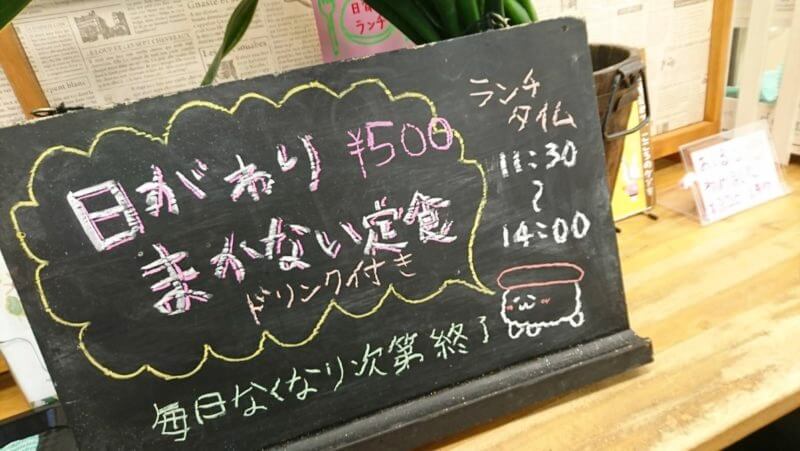 日がわり ¥500
まかない定食
ドリンク付き
毎日なくなり次第終了
ランチ
タイム
11:30
~
14:00
ランチ